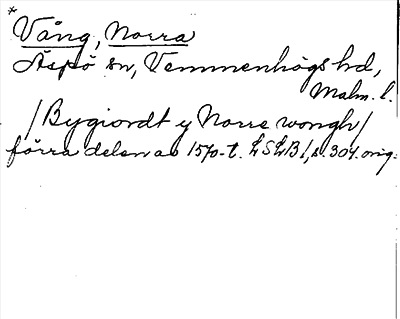 *
Vång, Norra
Äspö sn, Vemmenhögs hd,
Malm. l.
/Bygiordt y Norre wongh/
förra delen av 1570-t. LSLB 1, s. 304. orig.